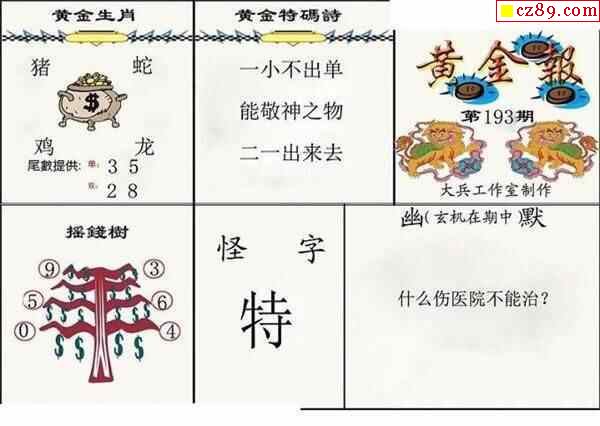 cz89.com
黄金生肖
猪 蛇
$
鸡 龙
尾數提供: 单: 3 5
双: 2 8
黄金特碼詩
一小不出单
能敬神之物
二一出来去
黄金報
第193期
大兵工作室制作
摇錢樹
9 3
5 6
0 4
$ $ $ $ $ $ $ $
怪 字
特
幽(玄机在期中)默
什么伤医院不能治？